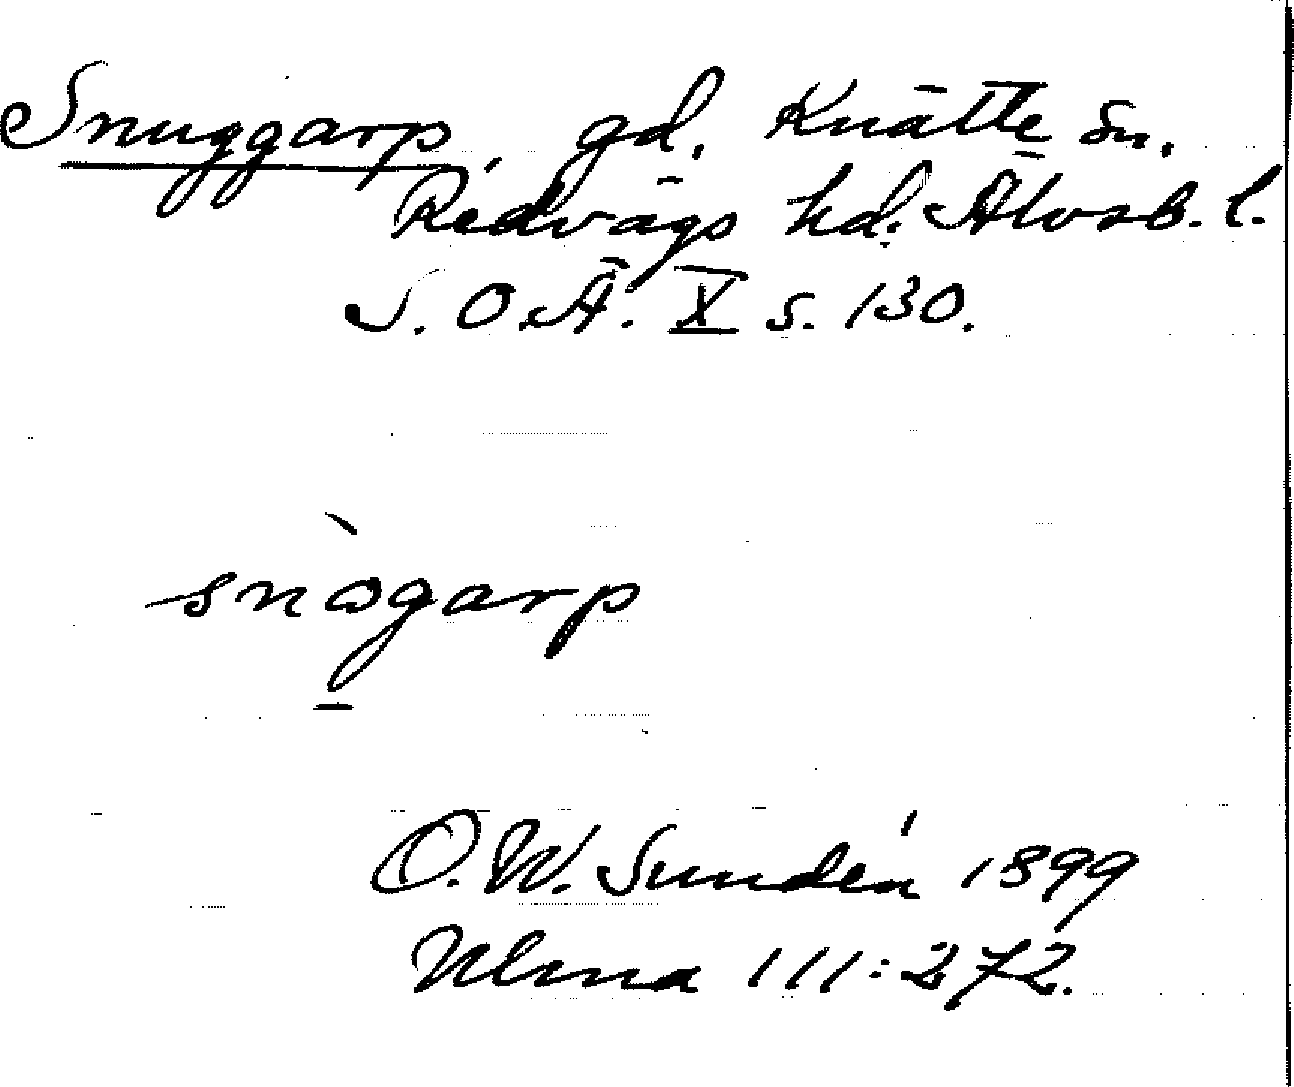 Snuggarp, gd. Knätte sn.
Redvägs hd. Älvsb. l.
S. O. Ä. X s. 130.
snògarp
O. W. Sundén 1899
Ulma 111:272.